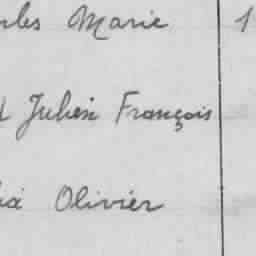 rles Marie 1
Julien François
Olivier